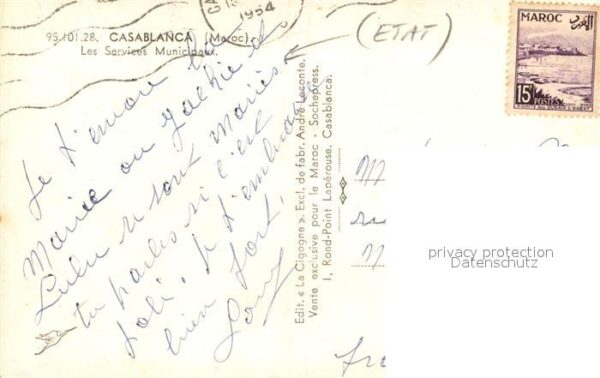 95.101.28. CASABLANCA (Maroc).
Les Services Municipaux.
1954
(ETAT)
MAROC
15F POSTES
Je t'envoie la
Mairie ou
Lulu se sont mariés
tu parles si c'est
joli. Je t'embrasse
bien fort.
Edit. « La Cigogne ». Excl. de fabr. André Leconte.
Vente exclusive pour le Maroc - Sochepress.
1, Rond-Point Lapérouse. Casablanca.
privacy protection
Datenschutz